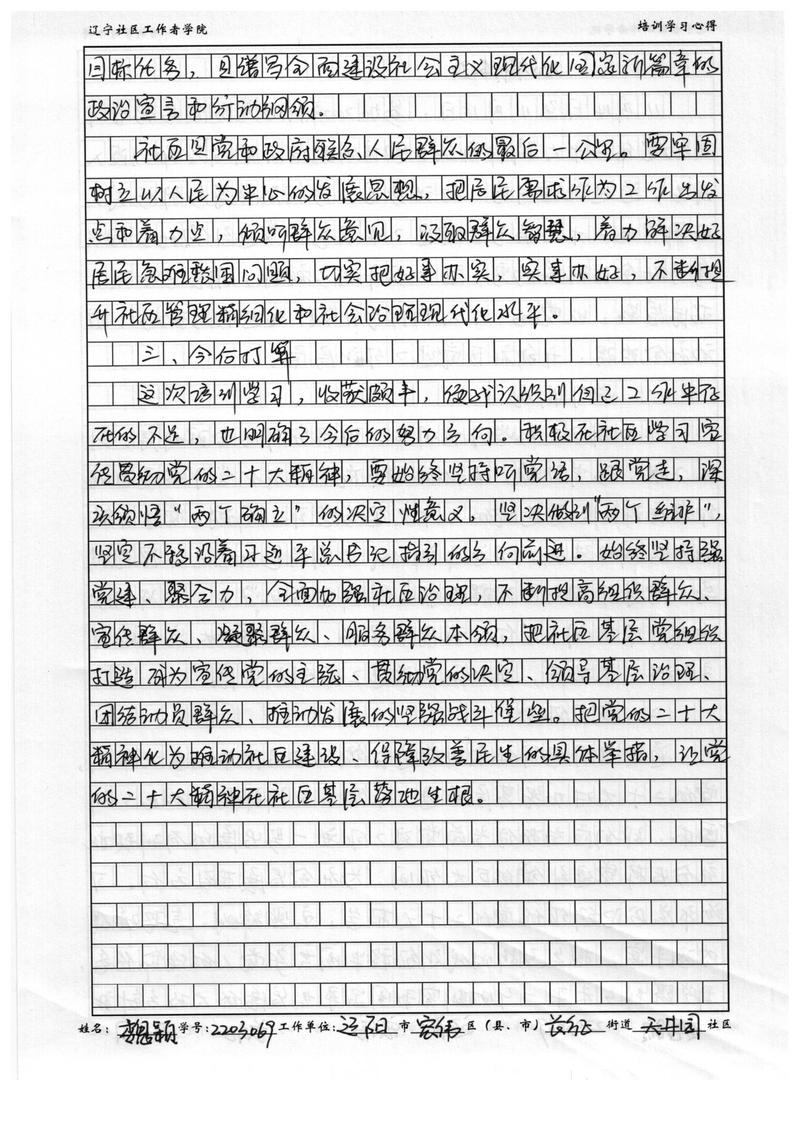 辽宁社区工作者学院 培训学习心得
目标任务，且谱写全面建设社会主义现代化国家新篇章的
政治宣言和行动纲领。
社区是党和政府联系人民群众的最后一公里。要牢固
树立以人民为中心的发展思想，把居民需求作为工作出发
点和着力点，倾听群众意见，汲取群众智慧，着力解决好
居民急难愁困问题，切实把好事办实，实事办好，不断提
升社区管理精细化和社会治理现代化水平。
三、今后打算
这次培训学习，收获颇丰，使我认识到自己工作中存
在的不足，也明确了今后的努力方向。积极在社区学习宣
传贯彻党的二十大精神，要始终坚持听党话，跟党走，深
刻领悟“两个确立”的决定性意义，坚决做到“两个维护”，
坚定不移沿着习近平总书记指引的方向前进。始终坚持强
党建、聚合力，全面加强社区治理，不断提高组织群众、
宣传群众、凝聚群众、服务群众本领，把社区基层党组织
打造成为宣传党的主张、贯彻党的决定、领导基层治理、
团结动员群众、推动发展的坚强战斗堡垒。把党的二十大
精神化为推动社区建设、保障改善民生的具体举措，让党
的二十大精神在社区基层落地生根。
姓名：魏颖 学号：2203069 工作单位：辽阳 市 宏伟 区（县、市）长征 街道 社区